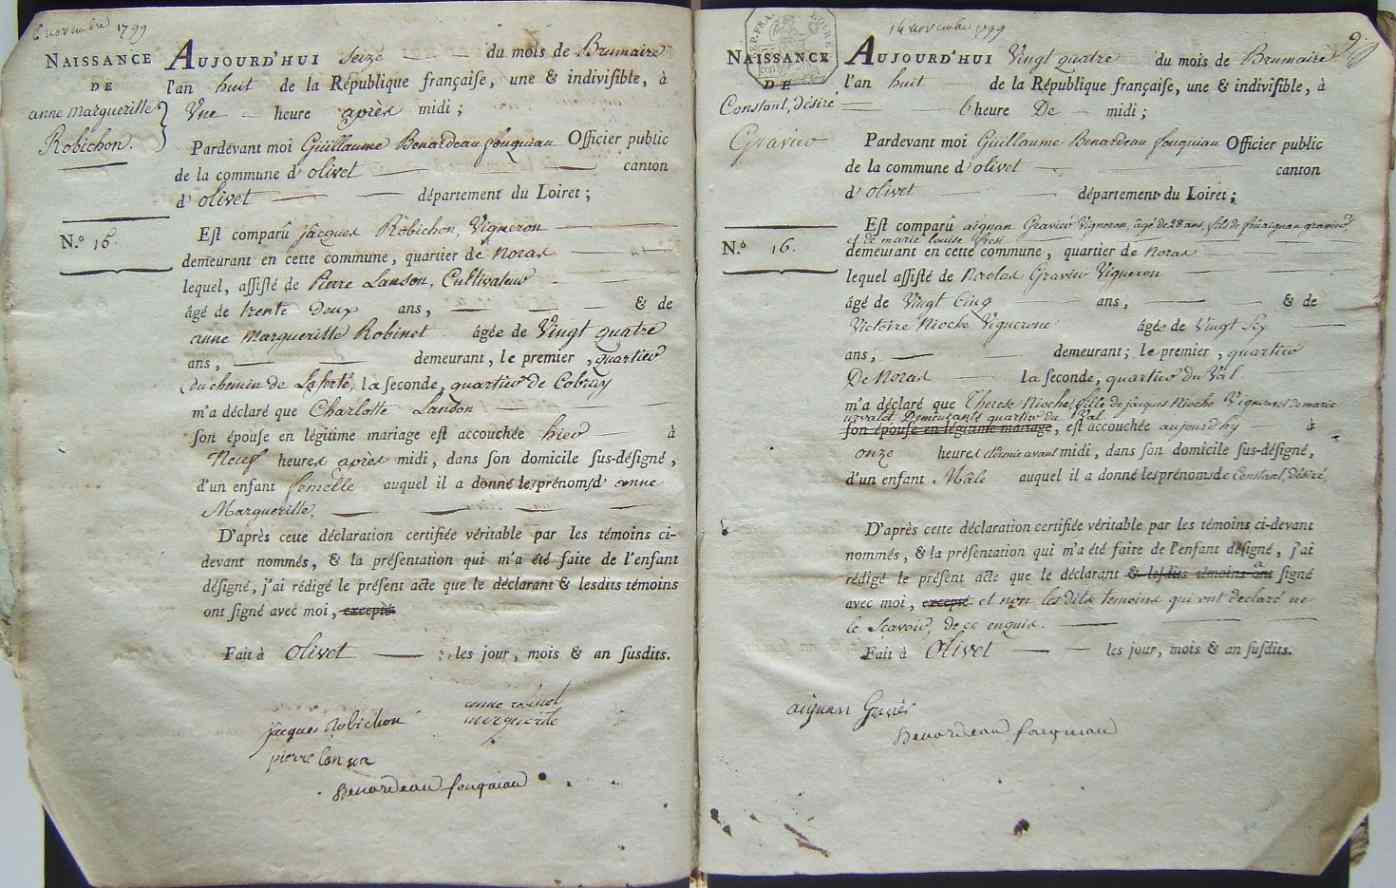 6 novembre 1799
NAISSANCE
DE
anne Marguerille
Robichon.
N.o 15.
AUJOURD'HUI Seize du mois de Brumaire
l'an huit de la République française, une & indivisible, à
Une heure après midi ;
Pardevant moi Guillaume Benardeau fouquiau Officier public
de la commune d'olivet canton
d'olivet département du Loiret ;
Est comparû jacques Robichon, Vigneron
demeurant en cette commune, quartier de Noras
lequel, assisté de Pierre Lanson, Cultivateur
âgé de trente Deux ans, & de
anne Marguerille Robinet âgée de Vingt quatre
ans, demeurant, le premier, quartier
du chemin de Laferté, la seconde, quartier de Cobray
m'a déclaré que Charlotte Landon
son épouse en légitime mariage est accouchée hier à
Neuf heures après midi, dans son domicile sus-désigné,
d'un enfant femelle auquel il a donné les prénoms d'anne
Marguerille.
D'après cette déclaration certifiée véritable par les témoins ci-
devant nommés, & la présentation qui m'a été faite de l'enfant
désigné, j'ai rédigé le présent acte que le déclarant & lesdits témoins
ont signé avec moi, excepté
Fait à Olivet les jour, mois & an susdits.
jacques Robichon
anne robinet
marguerite
pierre lanson
Benardeau fouquiau
14 novembre 1799
9
NAISSANCE
DE
Constant, désiré
Gravier
N.o 16.
AUJOURD'HUI Vingt quatre du mois de Brumaire
l'an huit de la République française, une & indivisible, à
6 heure De midi ;
Pardevant moi Guillaume Benardeau fouquiau Officier public
de la commune d'olivet canton
d'olivet département du Loiret ;
Est comparû aignan Gravier Vigneron, âgé de 28 ans, fils de aignan gravier,
et de marie louise
demeurant en cette commune, quartier de Noras
lequel assisté de Nicolas Gravier Vigneron
âgé de Vingt Cinq ans, & de
Victoire Nioche Vigneronne âgée de Vingt Six
ans, demeurant ; le premier, quartier
De Noras la seconde, quartier du Val
m'a déclaré que Therese Nioche, fille de jacques Nioche Vigneron et de marie
demeurante quartier du Val
son épouse en légitime mariage, est accouchée aujourdhy à
onze heures avant midi, dans son domicile sus-désigné,
d'un enfant Male auquel il a donné les prénoms de Constant, désiré,
D'après cette déclaration certifiée véritable par les témoins ci-devant
nommés, & la présentation qui m'a été faite de l'enfant désigné, j'ai
rédigé le présent acte que le déclarant & lesdits témoins ont signé
avec moi, excepté et non lesdits temoins qui ont declaré ne
le Scavoir, de ce enquis.
Fait à Olivet les jour, mois & an susdits.
aignan Graviér
Benardeau fouquiau